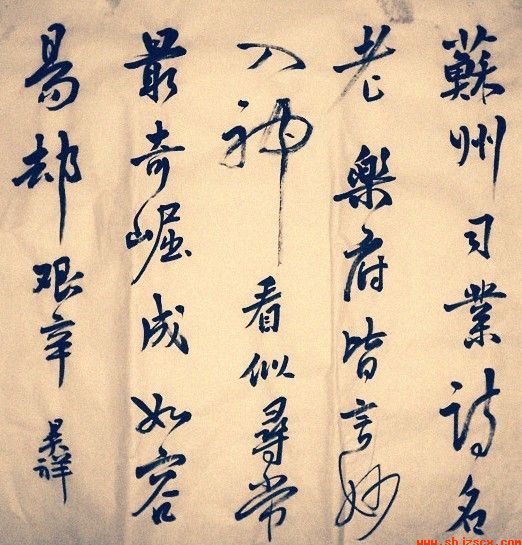 蘇州司業詩名
老樂府皆言妙
入神看似尋常
最奇崛成如容
易却艰辛